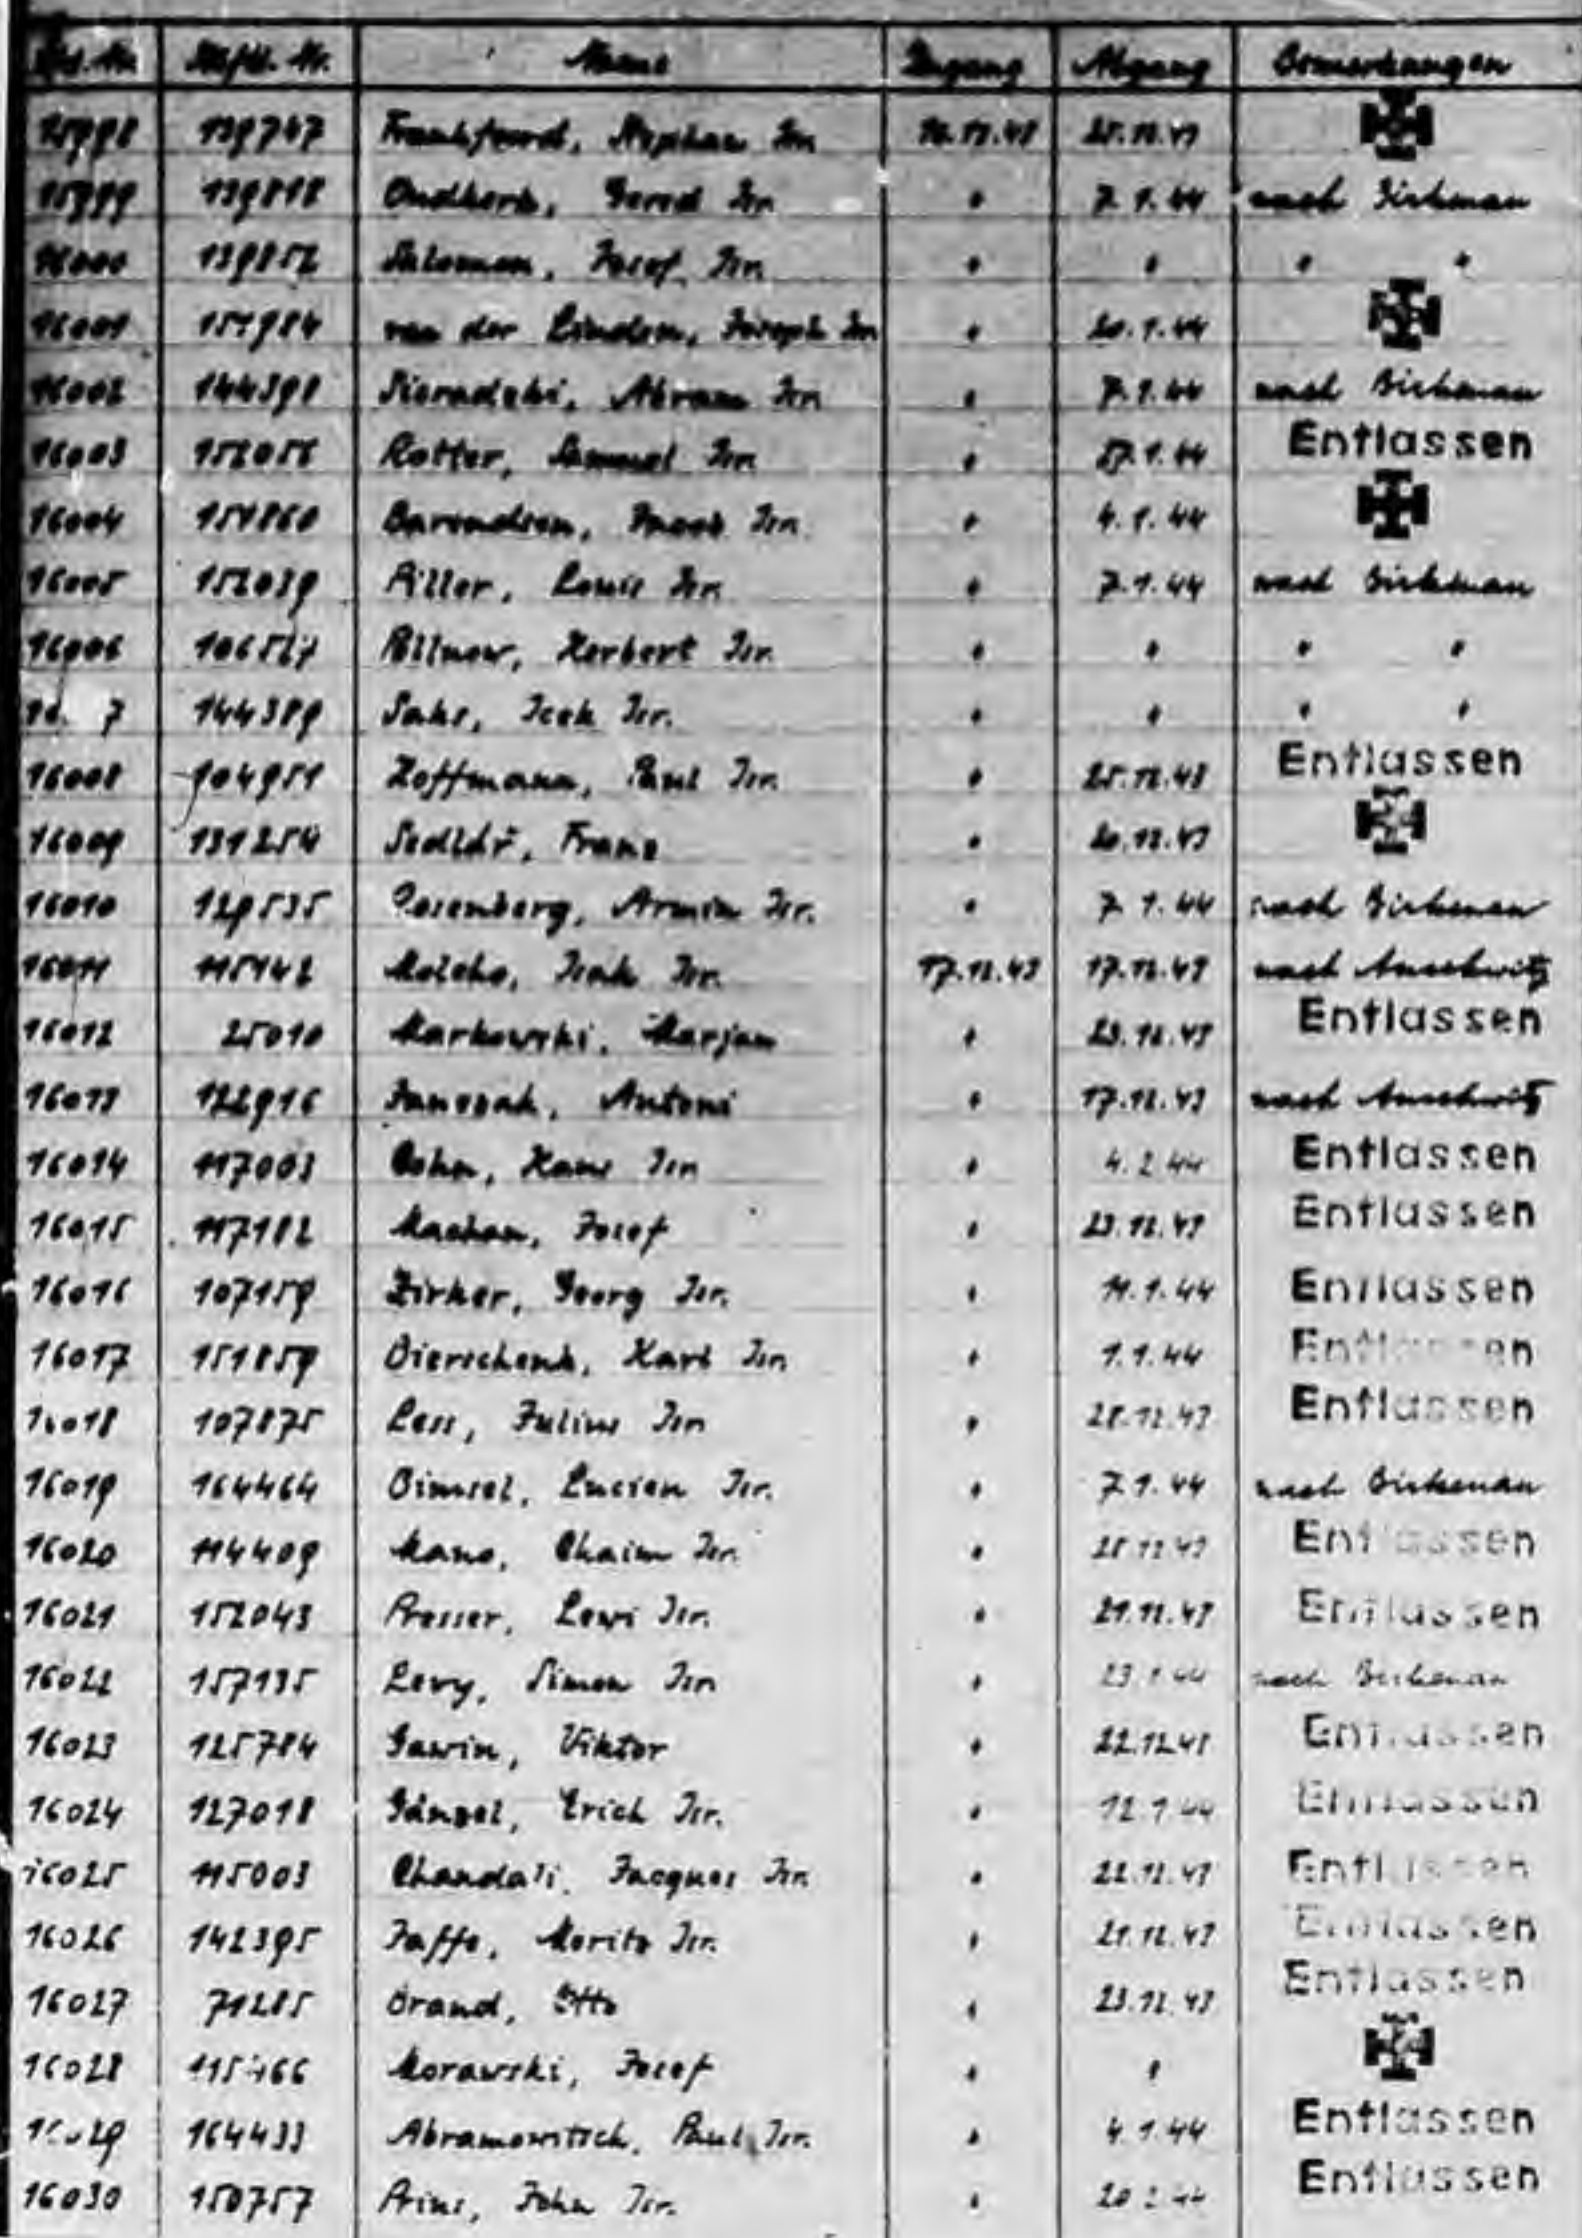 Lfd. Nr. Häftl.-Nr. Name Zugang Abgang Bemerkungen
15998 139747 Frankfoord, Stephan Isr. 16.12.43 25.12.43
15999 139818 Oudkerk, Gerod Isr. " 7.1.44 nach Birkenau
16000 139852 Salomon, Josef Isr. " " " "
16001 151984 van der Linden, Joseph Isr. " 20.1.44
16002 144398 Sieradzki, Abram Isr. " 7.1.44 nach Birkenau
16003 152056 Rotter, Samuel Isr. " 27.1.44 Entlassen
16004 151860 Barendsen, Jacob Isr. " 4.1.44
16005 152039 Piller, Louis Isr. " 7.1.44 nach Birkenau
16006 106527 Pollnow, Herbert Isr. " " " "
7 144389 Saks, Icek Isr. " " " "
16008 104951 Hoffmann, Paul Isr. " 25.12.43 Entlassen
16009 131254 Sedlár, Franz " 20.12.43
16010 129535 Rosenberg, Armin Isr. " 7.1.44 nach Birkenau
16011 115142 Molcho, Isak Isr. 17.12.43 17.12.43 nach Auschwitz
16012 25010 Markowski, Marjan " 23.12.43 Entlassen
16013 122916 Janczak, Antoni " 17.12.43 nach Auschwitz
16014 117003 Cohn, Hans Isr. " 4.2.44 Entlassen
16015 117182 Machan, Josef " 23.12.43 Entlassen
16016 107159 Zirker, Georg Isr. " 11.1.44 Entlassen
16017 151859 Bierschenk, Karl Isr. " 1.1.44 Entlassen
16018 107875 Less, Julius Isr. " 28.12.43 Entlassen
16019 164464 Bimsel, Lucien Isr. " 7.1.44 nach Birkenau
16020 114409 Mano, Chaim Isr. " 28.12.43 Entlassen
16021 152043 Presser, Lewi Isr. " 21.12.43 Entlassen
16022 157135 Levy, Simon Isr. " 23.1.44 nach Birkenau
16023 125784 Gawin, Viktor " 22.12.43 Entlassen
16024 127018 Gänzel, Erich Isr. " 12.1.44 Entlassen
16025 115003 Chandali, Jacques Isr. " 22.12.43 Entlassen
16026 142395 Jaffe, Moritz Isr. " 21.12.43 Entlassen
16027 71285 Brand, Otto " 23.12.43 Entlassen
16028 115466 Morawski, Josef " "
16029 164433 Abramowitsch, Paul Isr. " 4.1.44 Entlassen
16030 150757 Prins, John Isr. " 20.2.44 Entlassen